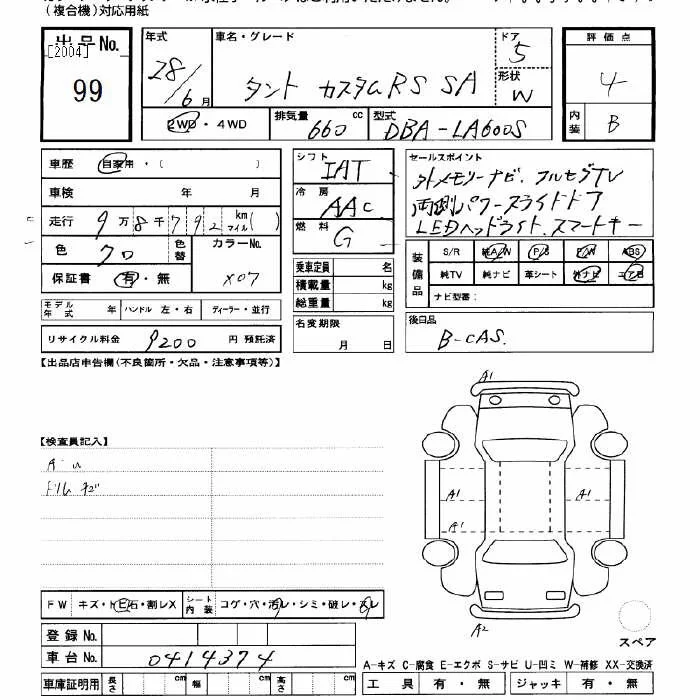 (複合機)対応用紙
出品No. [2004] 99
年式 28/6月
車名・グレード タント カスタムRS SA
ドア 5
形状 W
評価点 4
内装 B
2WD・4WD
排気量 660 cc
型式 DBA-LA600S
車歴 自家用・( )
車検 年 月
走行 9万8千792 km マイル( )
色 クロ 色替 カラーNo. X07
保証書 有・無
シフト IAT
冷房 AAC
燃料 G
乗車定員 名
積載量 kg
総重量 kg
セールスポイント
外メモリーナビ、フルセグTV
両側パワースライドドア
LEDヘッドライト、スマートキー
装備品 S/R 純A/W P/S P/W ABS
純TV 純ナビ 革シート 外ナビ エアB
ナビ型番:
モデル年式 年 ハンドル 左・右 ディーラー・並行
名変期限 月 日
後日品 B-CAS.
リサイクル料金 9200 円 預託済
【出品店申告欄(不良箇所・欠品・注意事項等)】
【検査員記入】
A1
A1 A1
A1
A2
FW キズ・トビ石・割レX シート内装 コゲ・穴・汚レ・シミ・破レ・スレ
スペア
登録No.
車台No. 0414374
A-キズ C-腐食 E-エクボ S-サビ U-凹ミ W-補修 XX-交換済
車庫証明用 長さ cm 幅 cm 高さ cm
工具 有・無 ジャッキ 有・無